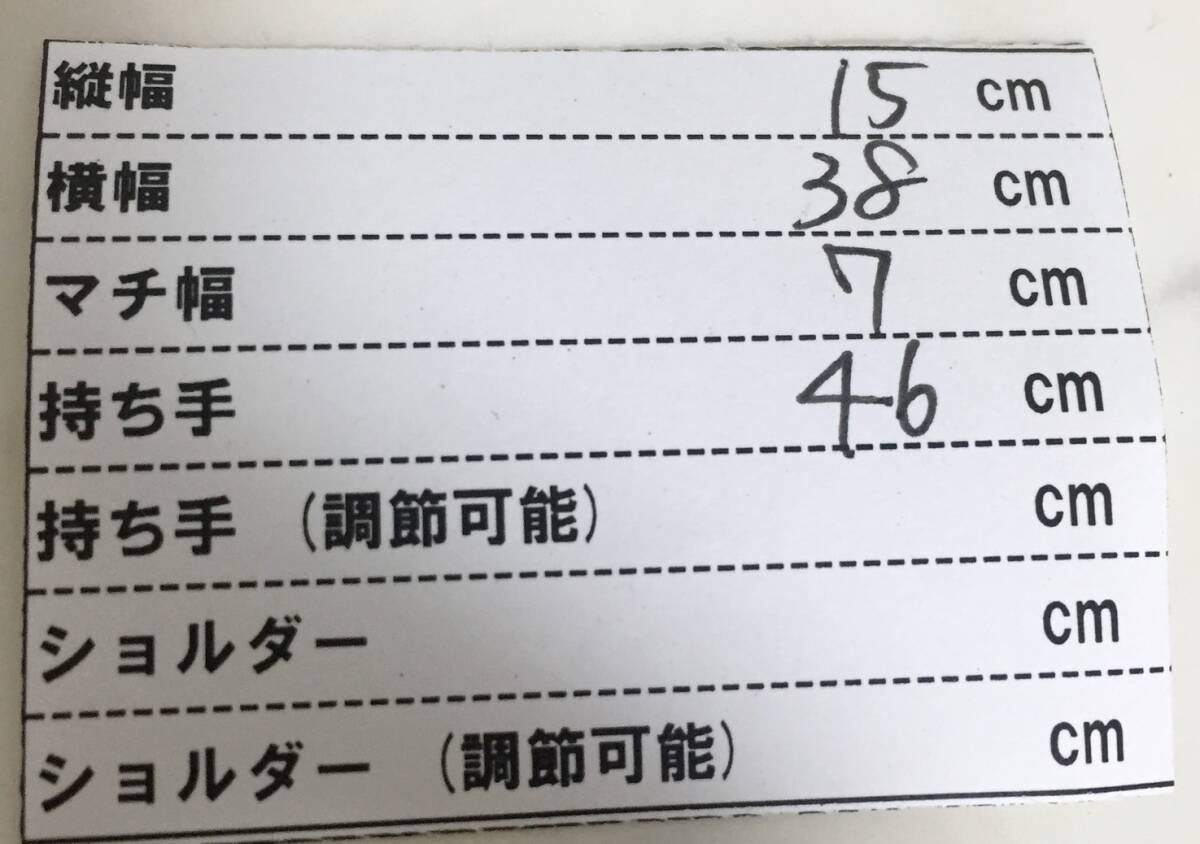 縦幅 15 cm
横幅 38 cm
マチ幅 7 cm
持ち手 46 cm
持ち手 (調節可能) cm
ショルダー cm
ショルダー (調節可能) cm